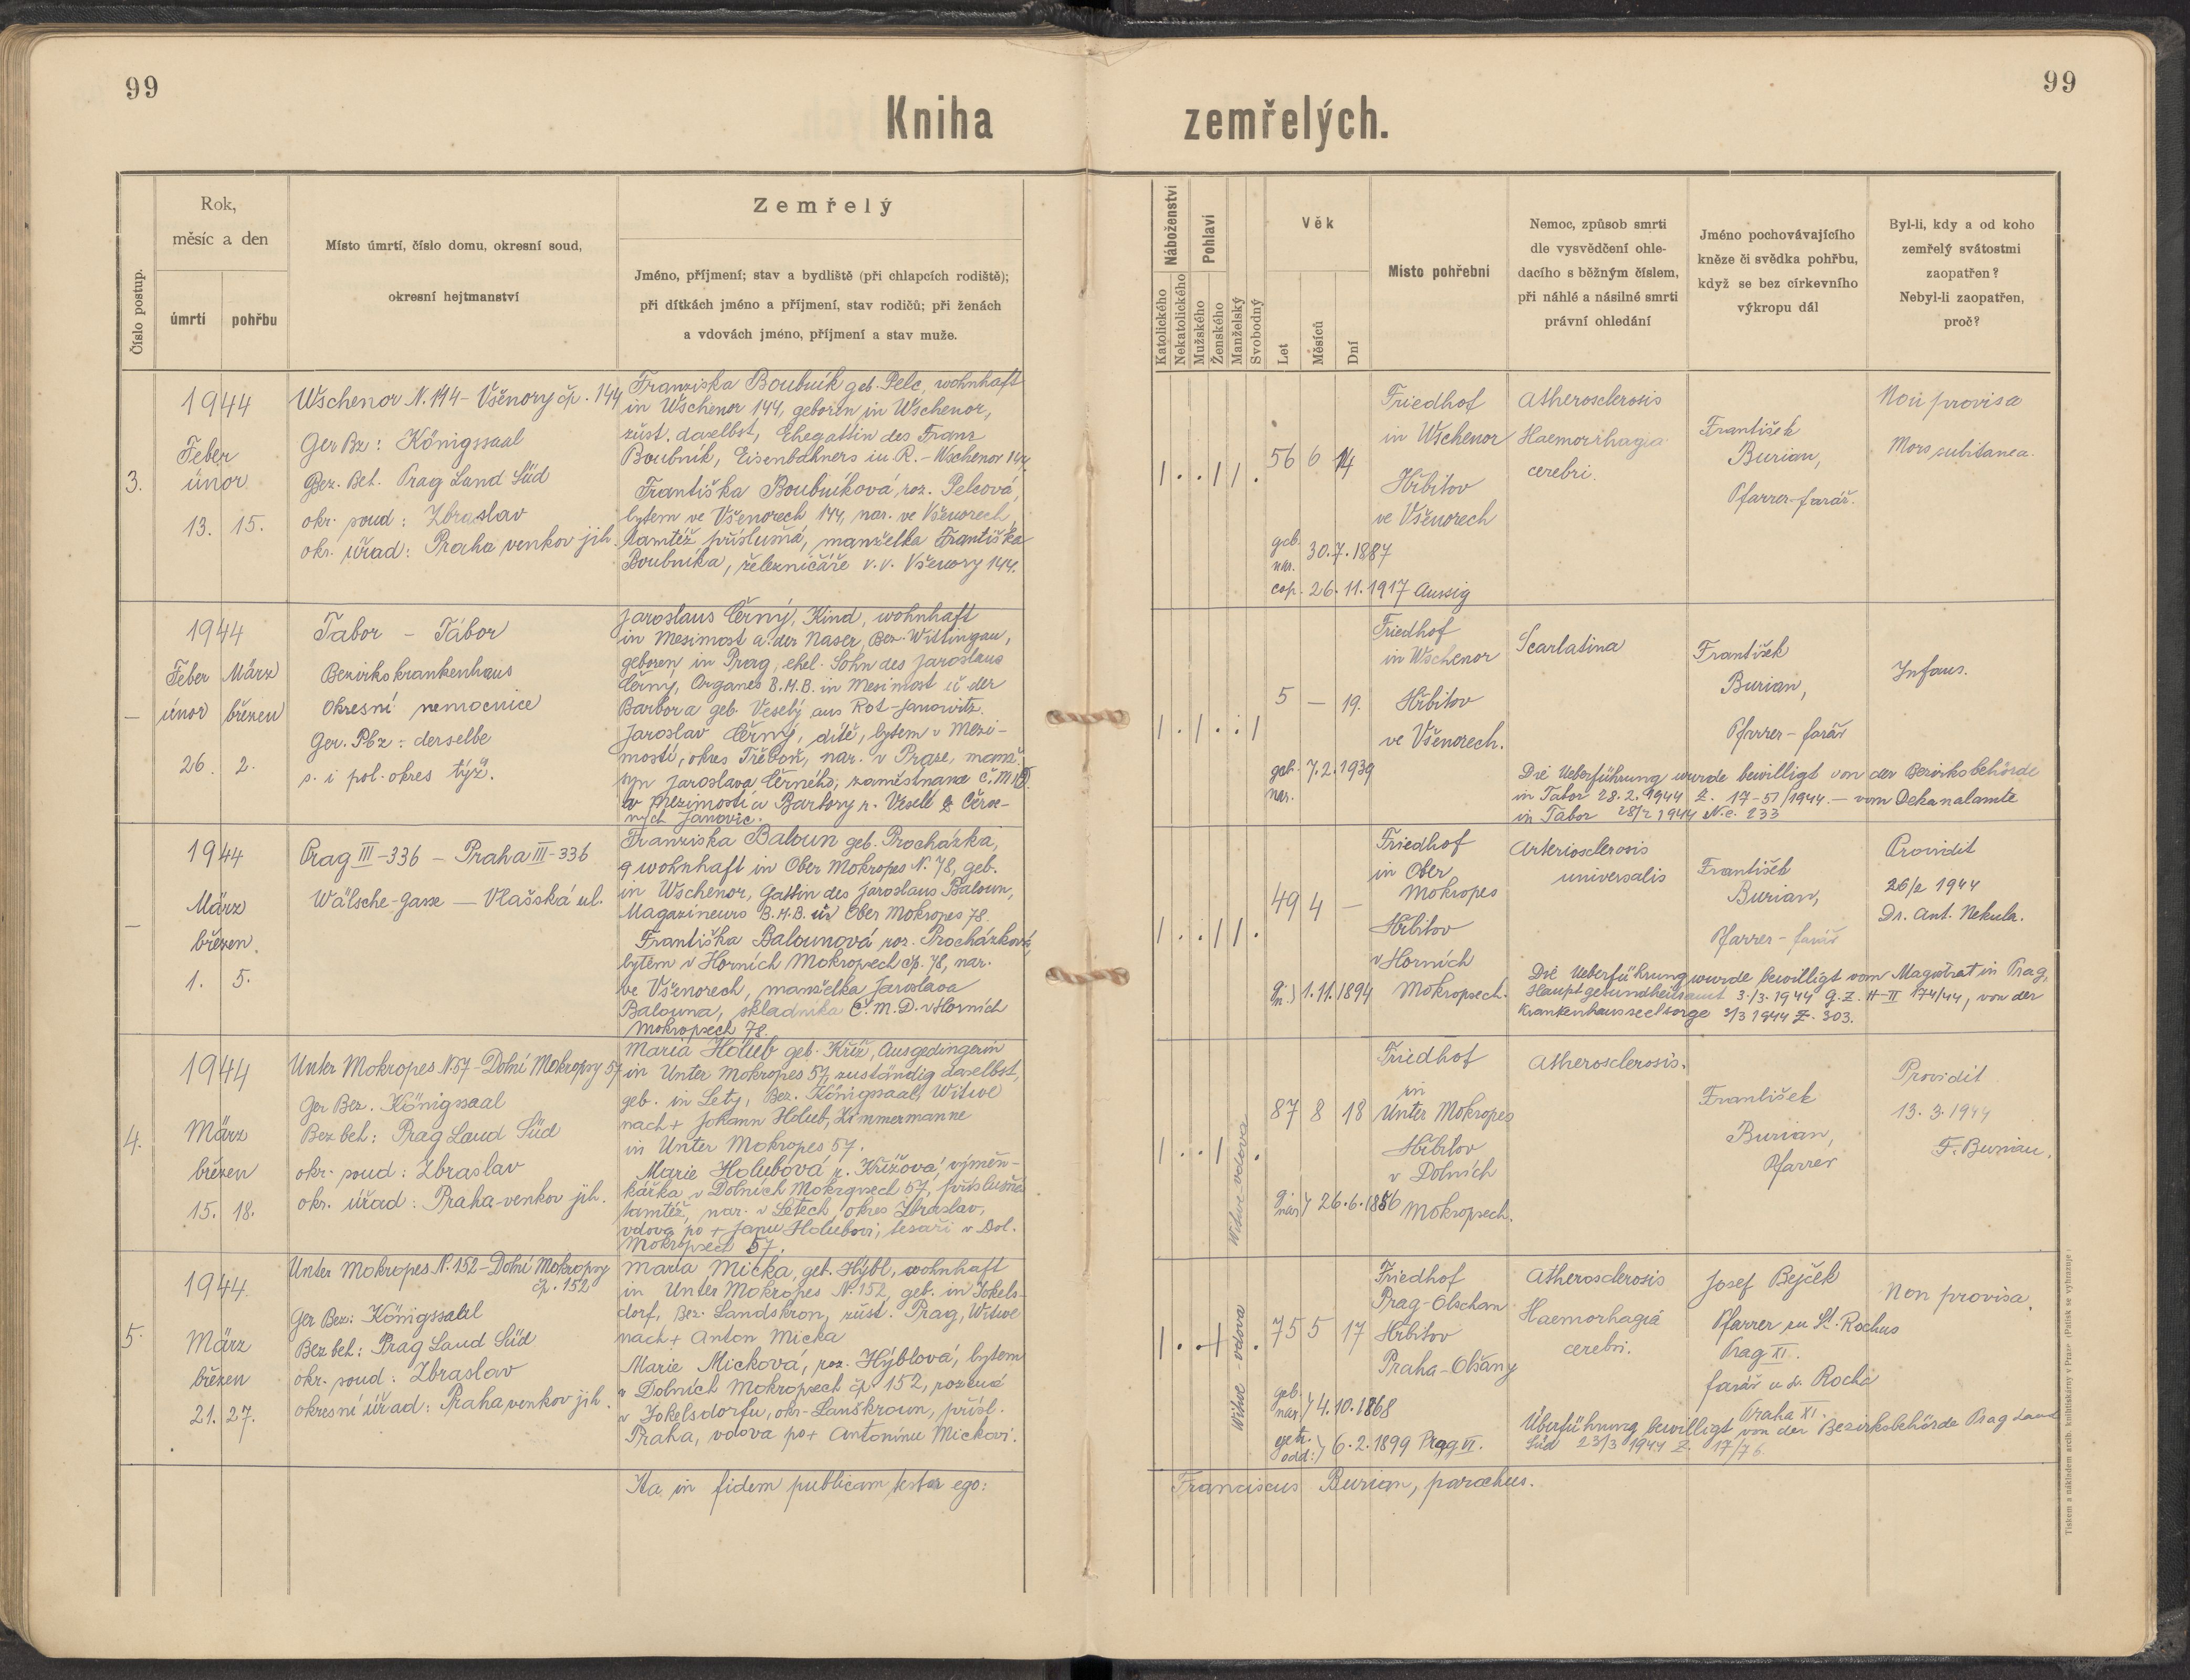 99
99
Kniha zemřelých.
Číslo postup.
Rok,
měsíc a den
úmrtí
pohřbu
Místo úmrtí, číslo domu, okresní soud,
okresní hejtmanství
Zemřelý
Jméno, příjmení; stav a bydliště (při chlapcích rodiště);
při dítkách jméno a příjmení, stav rodičů; při ženách
a vdovách jméno, příjmení a stav muže.
Náboženství
Katolického
Nekatolického
Pohlaví
Mužského
Ženského
Manželský
Svobodný
Věk
Let
Měsíců
Dní
Místo pohřební
Nemoc, způsob smrti
dle vysvědčení ohle-
dacího s běžným číslem,
při náhlé a násilné smrti
právní ohledání
Jméno pochovávajícího
kněze či svědka pohřbu,
když se bez církevního
výkropu dál
Byl-li, kdy a od koho
zemřelý svátostmi
zaopatřen?
Nebyl-li zaopatřen,
proč?
3.
1944
Feber
únor
13. 15.
Wschenor N. 144 - Všenory čp. 144
Ger Bz: Königssaal
Bez. Beh. Prag Land Süd
okr. soud: Zbraslav
okr. úřad: Praha venkov jih.
Franziska Boubník geb. Pelc, wohnhaft
in Wschenor 144, geboren in Wschenor,
zust. daselbst, Ehegattin des Franz
Boubník, Eisenbahners in R. - Wschenor 144
Františka Boubníková, roz. Pelcová,
bytem ve Všenorech 144, nar. ve Všenorech,
tamtéž příslušná, manželka Františka
Boubníka, železničáře v. v. Všenory 144.
1 . . 1 1 .
56 6 14
geb.
nar. 30. 7. 1887
cop. 26. 11. 1917 Aussig
Friedhof
in Wschenor
Hřbitov
ve Všenorech
Atherosclerosis
Haemorrhagia
cerebri.
František
Burian,
Pfarrer-farář.
Non provisa
Mors subitanea.
—
1944
Feber März
únor březen
26. 2.
Tabor - Tábor
Bezirkskrankenhaus
Okresní nemocnice
Ger. Pbz: derselbe
s. i pol. okres týž.
Jaroslaus Černý, Kind, wohnhaft
in Mesimost a. der Naser, Bez. Wittingau,
geboren in Prag, ehel. Sohn des Jaroslaus
Černý, Organes B.M.B. in Mesimost u. der
Barbora geb. Veselý aus Rot-Janowitz.
Jaroslav Černý, dítě, bytem v Mezi-
mostí, okres Třeboň, nar. v Praze, manž.
syn Jaroslava Černého, zaměstnance Č.M.D.
v Mezimostí a Barbory r. Veselé z Červe-
ných Janovic.
1 . 1 . . 1
5 — 19.
geb. 7. 2. 1939
nar.
Friedhof
in Wschenor
Hřbitov
ve Všenorech.
Scarlatina
František
Burian,
Pfarrer - farář
Infans.
Die Ueberführung wurde bewilligt von der Bezirksbehörde
in Tabor 28. 2. 1944 Z. 17-51/1944. — vom Dekanalamte
in Tábor 28/2 1944 N.e. 233
—
1944
März
březen.
1. 5.
Prag III-336 - Praha III-336
Wälsche-Gasse — Vlašská ul.
Franziska Baloun geb. Procházka,
wohnhaft in Ober Mokropes N. 78, geb.
in Wschenor, Gattin des Jaroslaus Baloun,
Magazineurs B.M.B. in Ober Mokropes 78.
Františka Balounová roz. Procházková,
bytem v Horních Mokropsech čp. 78, nar.
ve Všenorech, manželka Jaroslava
Balouna, skladníka Č.M.D. v Horních
Mokropsech 78.
1 . . 1 1 .
49 4 —
g.
n. 1. 11. 1894
Friedhof
in Ober
Mokropes
Hřbitov
v Horních
Mokropsech.
Arteriosclerosis
universalis
František
Burian,
Pfarrer - farář
Providit
26/2 1944
Dr. Ant. Nekula.
Die Ueberführung wurde bewilligt vom Magistrat in Prag,
Hauptgesundheitsamt 3./3. 1944 G.Z. H-II 174/44, von der
Krankenhausseelsorge 3/3 1944 Z. 303.
4.
1944
März
březen
15. 18.
Unter Mokropes N. 57 - Dolní Mokropsy 57
Ger Bez. Königssaal
Bez beh: Prag Land Süd
okr. soud: Zbraslav
okr. úřad: Praha-venkov jih.
Maria Holub geb. Kříž, Ausgedingerin
in Unter Mokropes 57, zuständig daselbst,
geb. in Lety, Bez. Königssaal, Witwe
nach + Johann Holub, Zimmermanne
in Unter Mokropes 57.
Marie Holubová r. Křížová, výměn-
kářka v Dolních Mokropsech 57, příslušná
tamtéž, nar. v Letech, okres Zbraslav,
vdova po + Janu Holubovi, tesaři v Dol.
Mokropsech 57.
1 . . 1 .
Witwe - vdova
87 8 18
g.
nar. 26. 6. 1856
Friedhof
in
Unter Mokropes
Hřbitov
v Dolních
Mokropsech.
Atherosclerosis.
František
Burian,
Pfarrer
Providit
13. 3. 1944
F. Burian.
5.
1944.
März
březen
21. 27.
Unter Mokropes N. 152 - Dolní Mokropsy
čp. 152
Ger Bez: Königssaal
Bez beh: Prag Land Süd
okr. soud: Zbraslav
okresní úřad: Praha venkov jih.
Maria Micka, geb. Hýbl, wohnhaft
in Unter Mokropes N. 152, geb. in Jokels-
dorf, Bez. Landskron, zust. Prag, Witwe
nach + Anton Micka
Marie Micková, roz. Hýblová, bytem
v Dolních Mokropsech čp. 152, rozená
v Jokelsdorfu, okr. Lanškroun, přísl.
Praha, vdova po + Antonínu Mickovi.
1 . . 1 .
Witwe - vdova
75 5 17
geb.
nar. 4. 10. 1868
getr.
odd: 6. 2. 1899 Prag VI.
Friedhof
Prag-Olschan
Hřbitov
Praha-Olšany
Atherosclerosis
Haemorhagia
cerebri.
Josef Bejček
Pfarrer zu St. Rochus
Prag XI.
farář u sv. Rocha
Praha XI.
Non provisa.
Überführung bewilligt von der Bezirksbehörde Prag Land
Süd 23/3 1944 Z. 17/76
Ita in fidem publicam testor ego:
Franciscus Burian, parochus.
Tiskem a nákladem arcib. knihtiskárny v Praze. (Padisk se vyhrazuje)